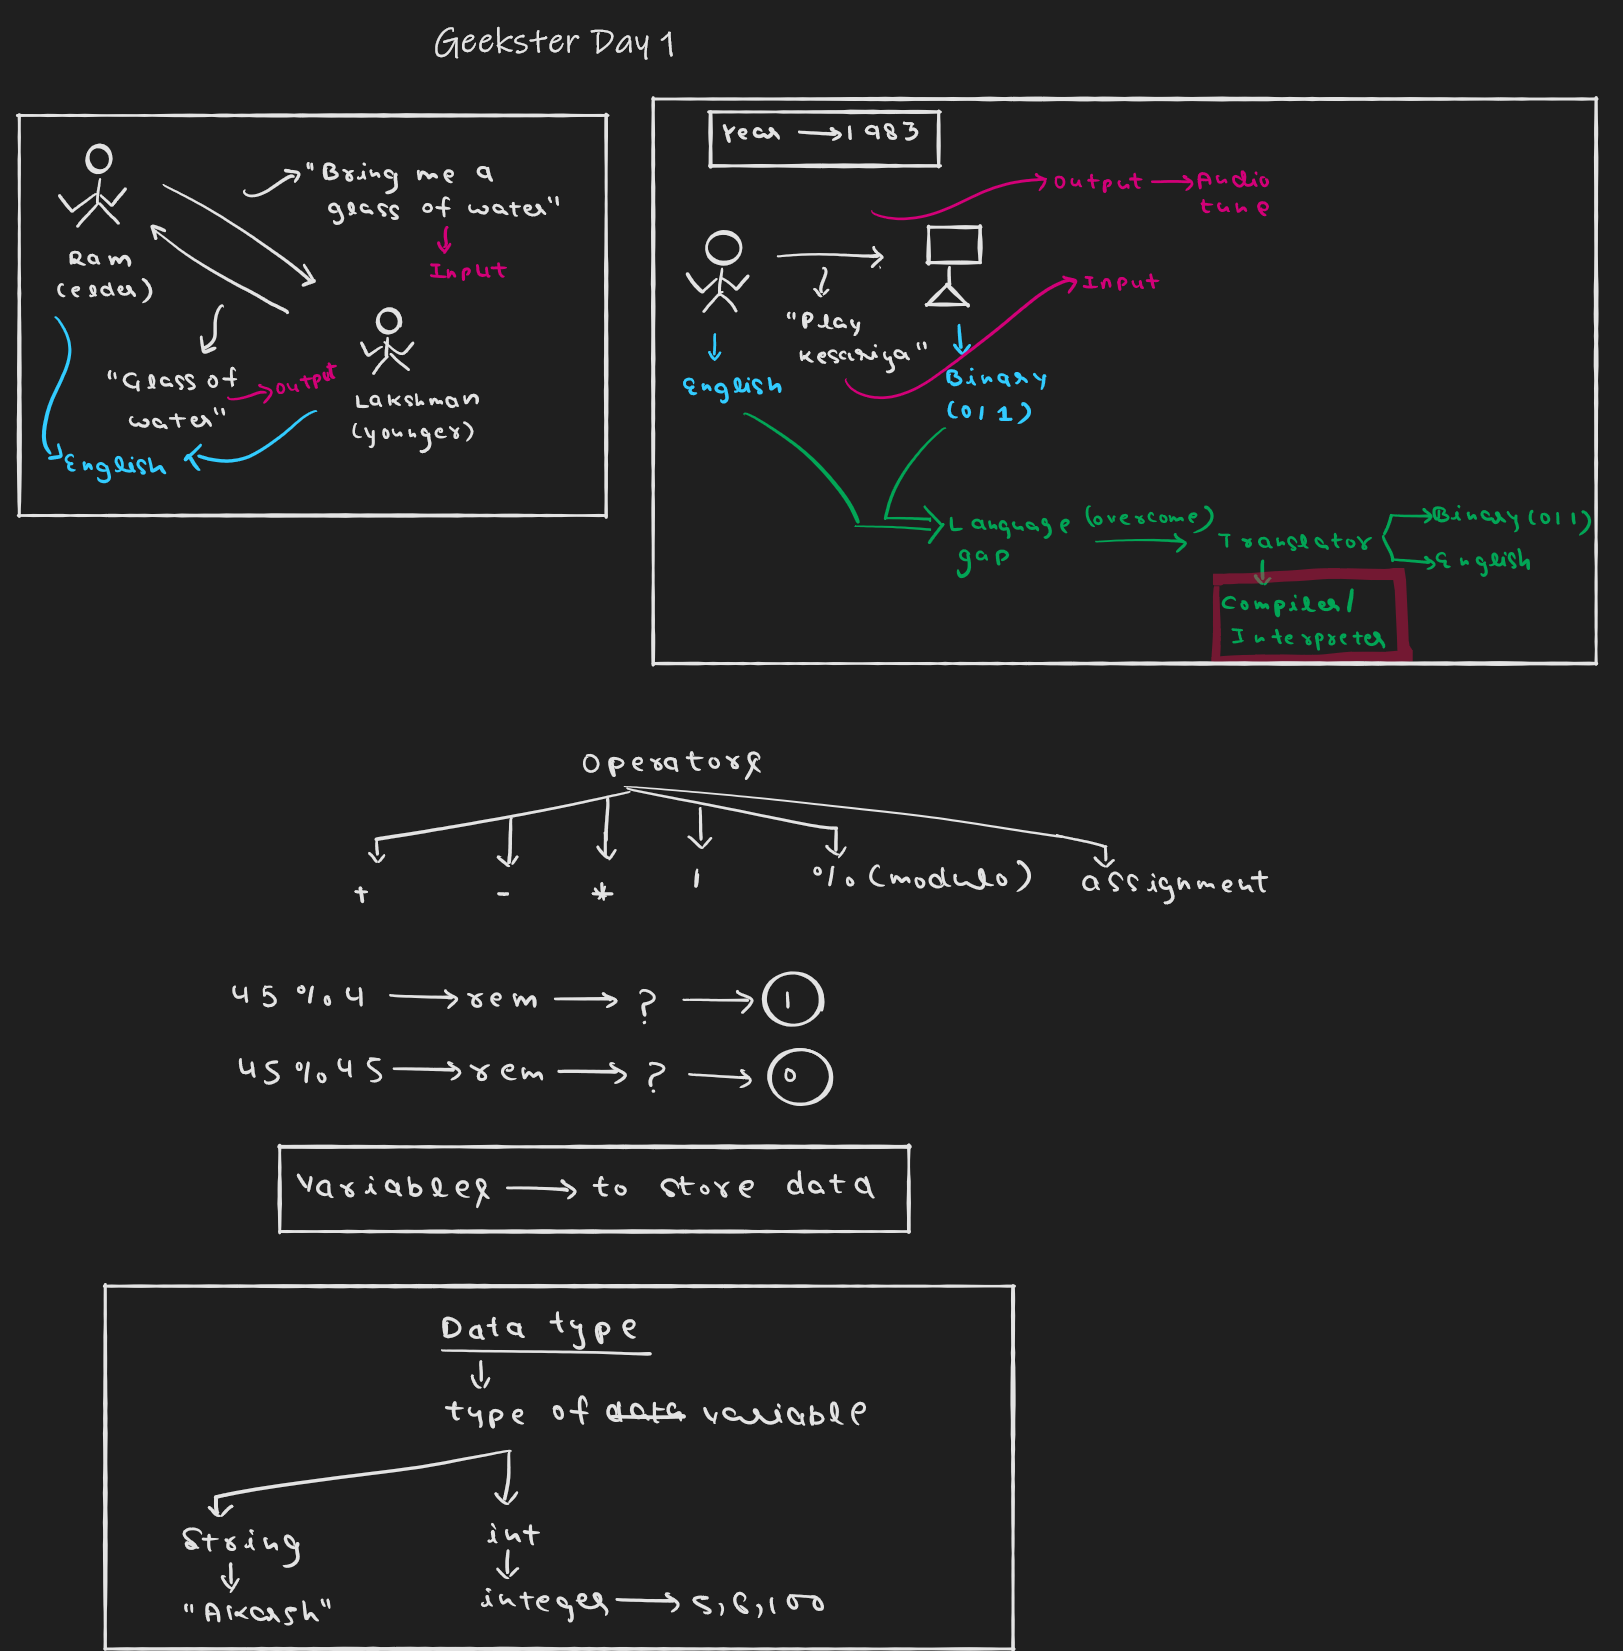 Geekster Day 1
"Bring me a
glass of water"
Input
Ram
(elder)
"Glass of
water"
output
Lakshman
(younger)
English
Year → 1983
output → Audio
tune
Input
"Play
Kesariya"
English
Binary
(0/1)
Language (overcome)
gap
Translator
Binary (0/1)
English
Compiler/
Interpreter
Operators
+ - * / % (modulo) assignment
45 % 4 → rem → ? → 1
45 % 45 → rem → ? → 0
Variables → to store data
Data type
type of data variable
String int
"Akarsh" integer → 5, 6, 100